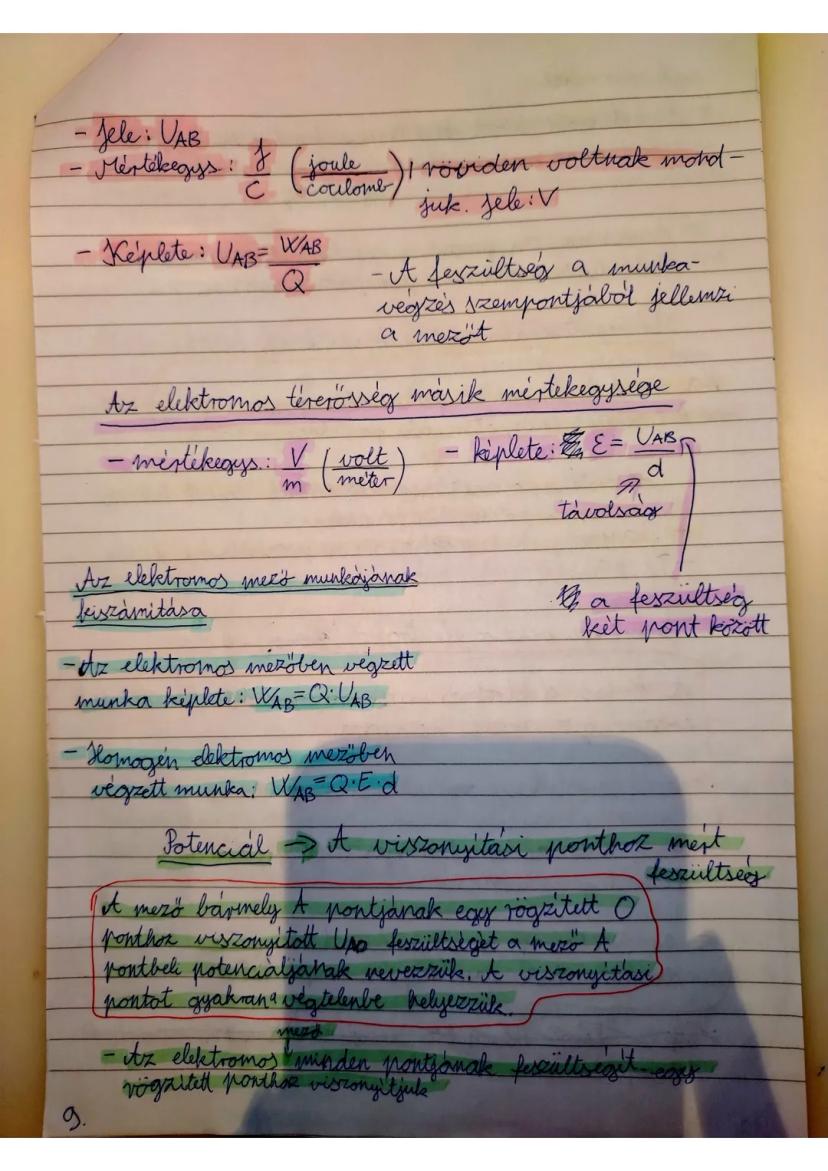 - Jele: UAB
- Mértékegys.: J/C (joule/coulomb), röviden voltnak mond-
juk. Jele: V
- Képlete: UAB = WAB/Q
- A feszültség a munka-
végzés szempontjából jellemzi
a mezőt
Az elektromos térerősség másik mértékegysége
- mértékegys.: V/m (volt/méter)
- képlete: E = UAB/d
távolság
a feszültség
két pont között
Az elektromos mező munkájának
kiszámítása
- Az elektromos mezőben végzett
munka képlete: WAB = Q·UAB
- Homogén elektromos mezőben
végzett munka: WAB = Q·E·d
Potenciál → A viszonyítási ponthoz mért
feszültség
A mező bármely A pontjának egy rögzített O
ponthoz viszonyított UAO feszültségét a mező A
pontbeli potenciáljának nevezzük. A viszonyítási
pontot gyakran a végtelenbe helyezzük.
mező
- Az elektromos minden pontjának feszültségét egy
rögzített ponthoz viszonyítjuk
9.